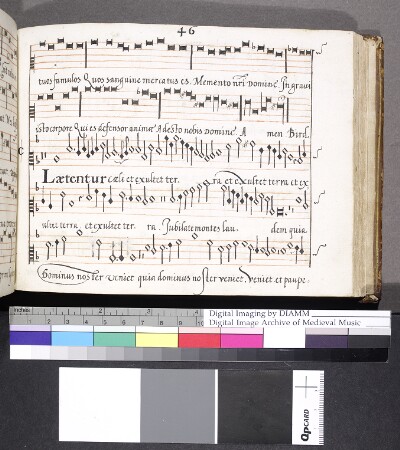 46
tuos famulos Quos sanguine mercatus es. Memento nr̃i Domine In gravi
isto corpore Qui es defensor animæ Adesto nobis Domine A men Bird.
C
Lætentur cæli et exultet ter. ra et exultet terra et ex
ultet terra et exultet ter. ra. Jubilate montes lau. dem quia
Dominus noster veniet quia dominus noster veniet. Veniet et paupe.
inches 1 2
Digital Imaging by DIAMM
Digital Image Archive of Medieval Music
QPCARD